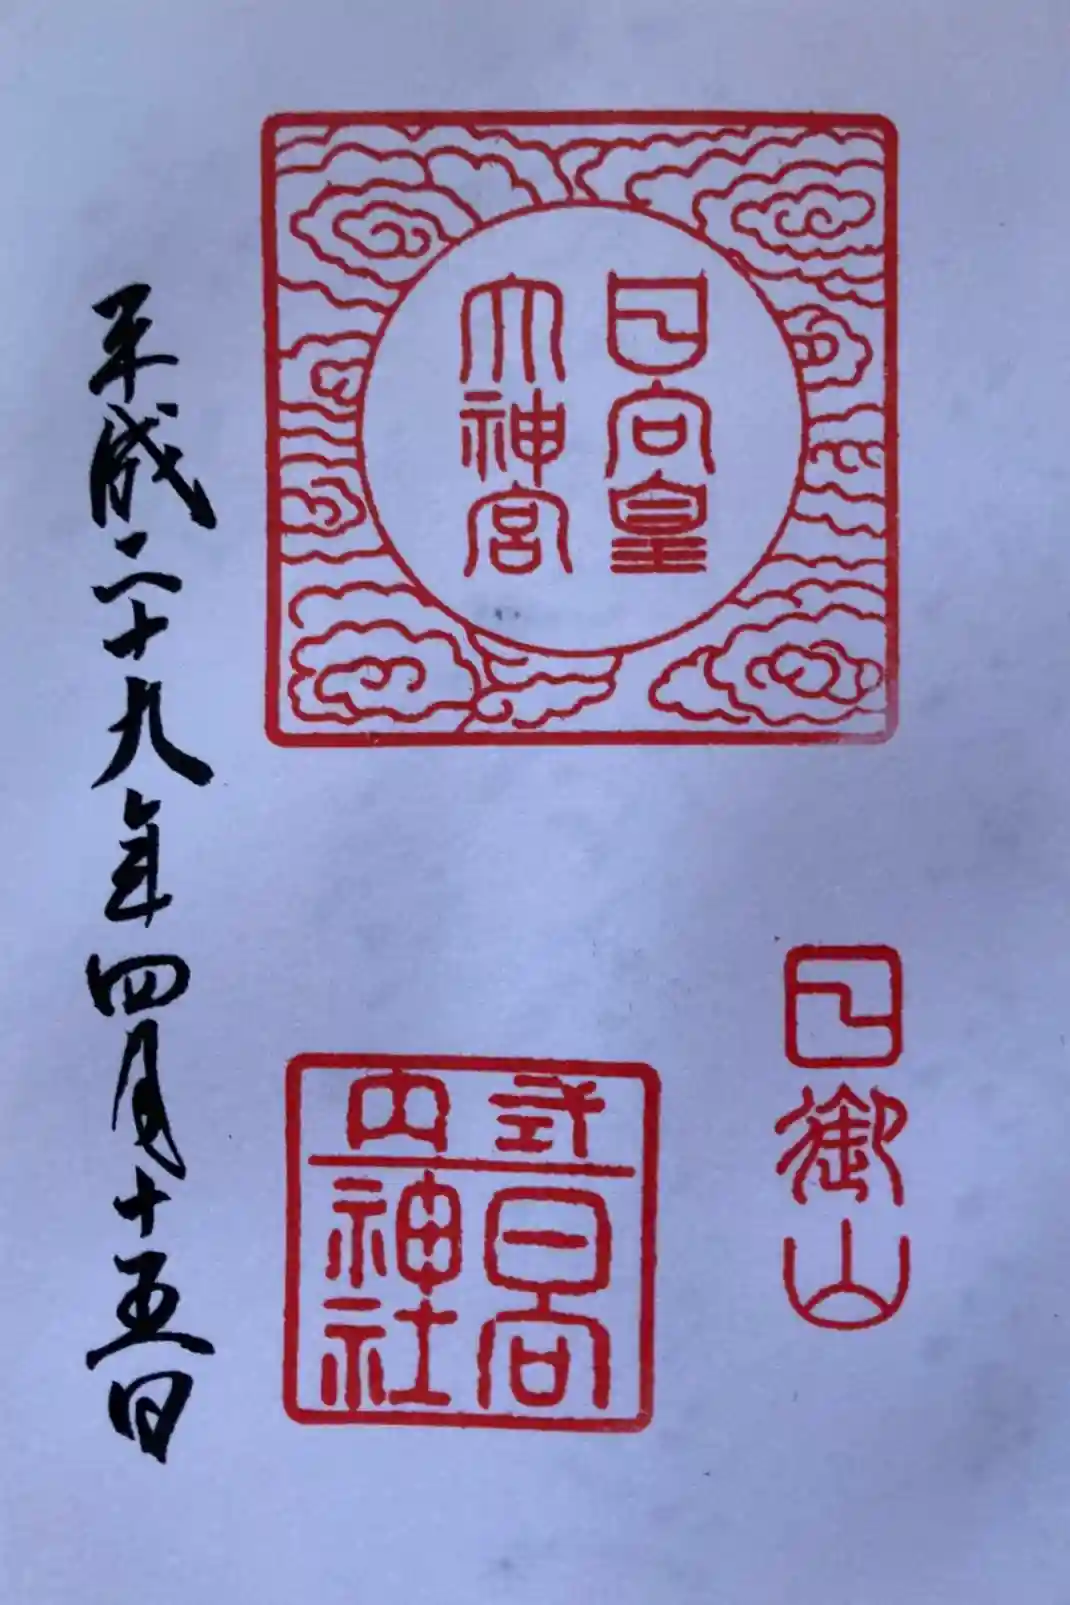 日向皇
大神宮
日御山
式内
日向
神社
平成二十九年四月十五日